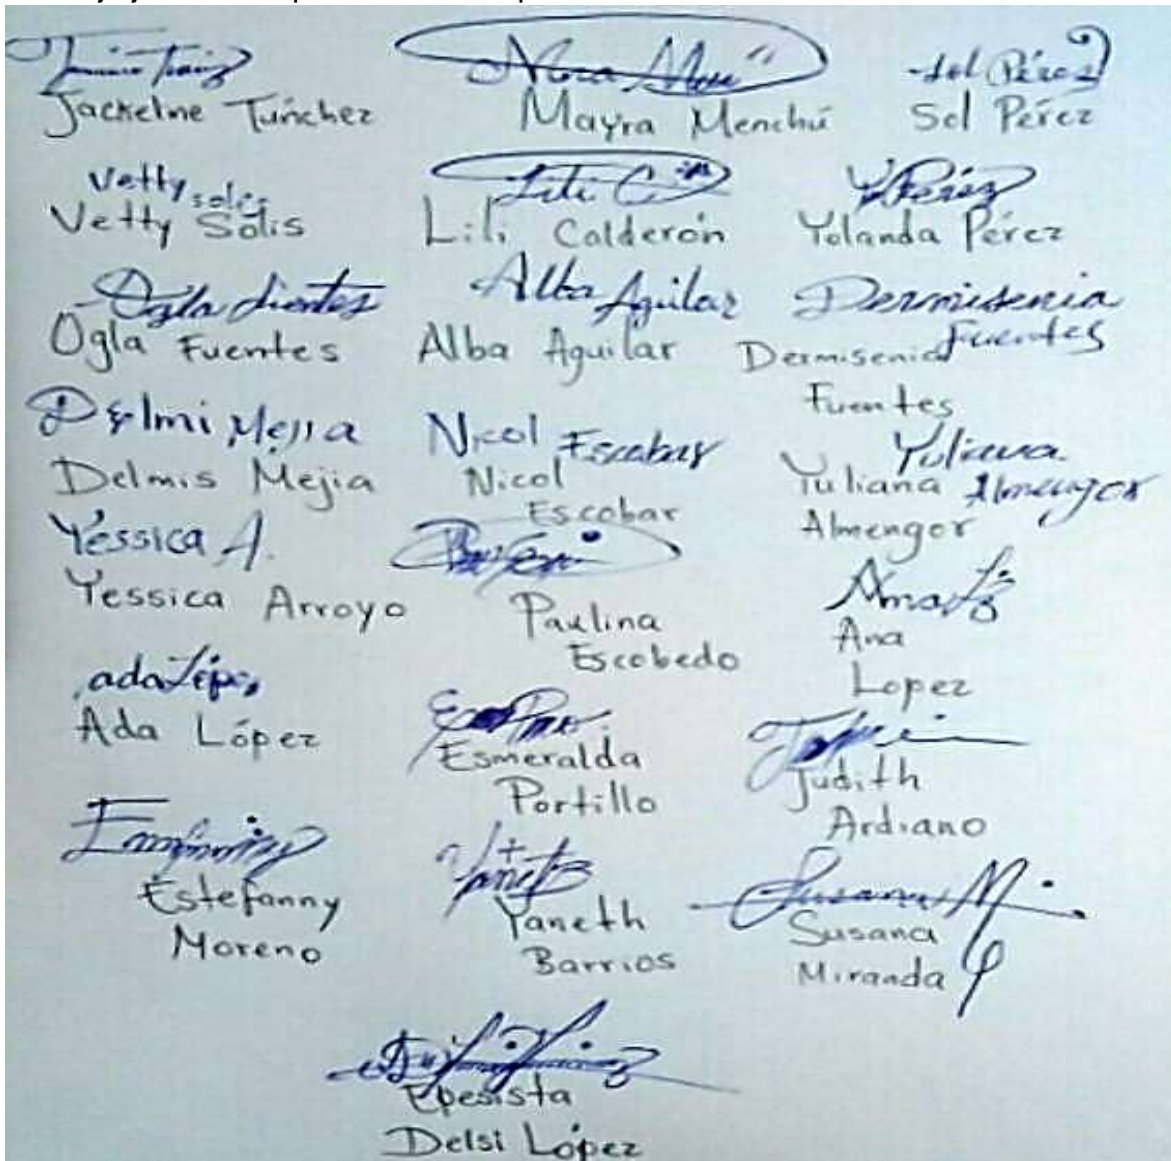 Jackeline Tunchez
Mayra Menchú
Sol Pérez
Sol Pérez
Vetty Solis
Vetty Solis
Lili C
Lili Calderón
YPérez
Yolanda Pérez
Ogla Fuentes
Ogla Fuentes
Alba Aguilar
Alba Aguilar
Dermisenia
Fuentes
Dermisenia
Fuentes
Delmi Mejia
Delmis Mejia
Nicol Escobar
Nicol
Escobar
Yuliana
Almengor
Yuliana
Almengor
Yéssica A.
Yessica Arroyo
Paulina
Escobedo
Ana
Lopez
ada López
Ada López
Esmeralda
Portillo
Judith
Ardiano
Estefanny
Moreno
Yaneth
Barrios
Susana M.
Susana
Miranda
Epesista
Delsi López